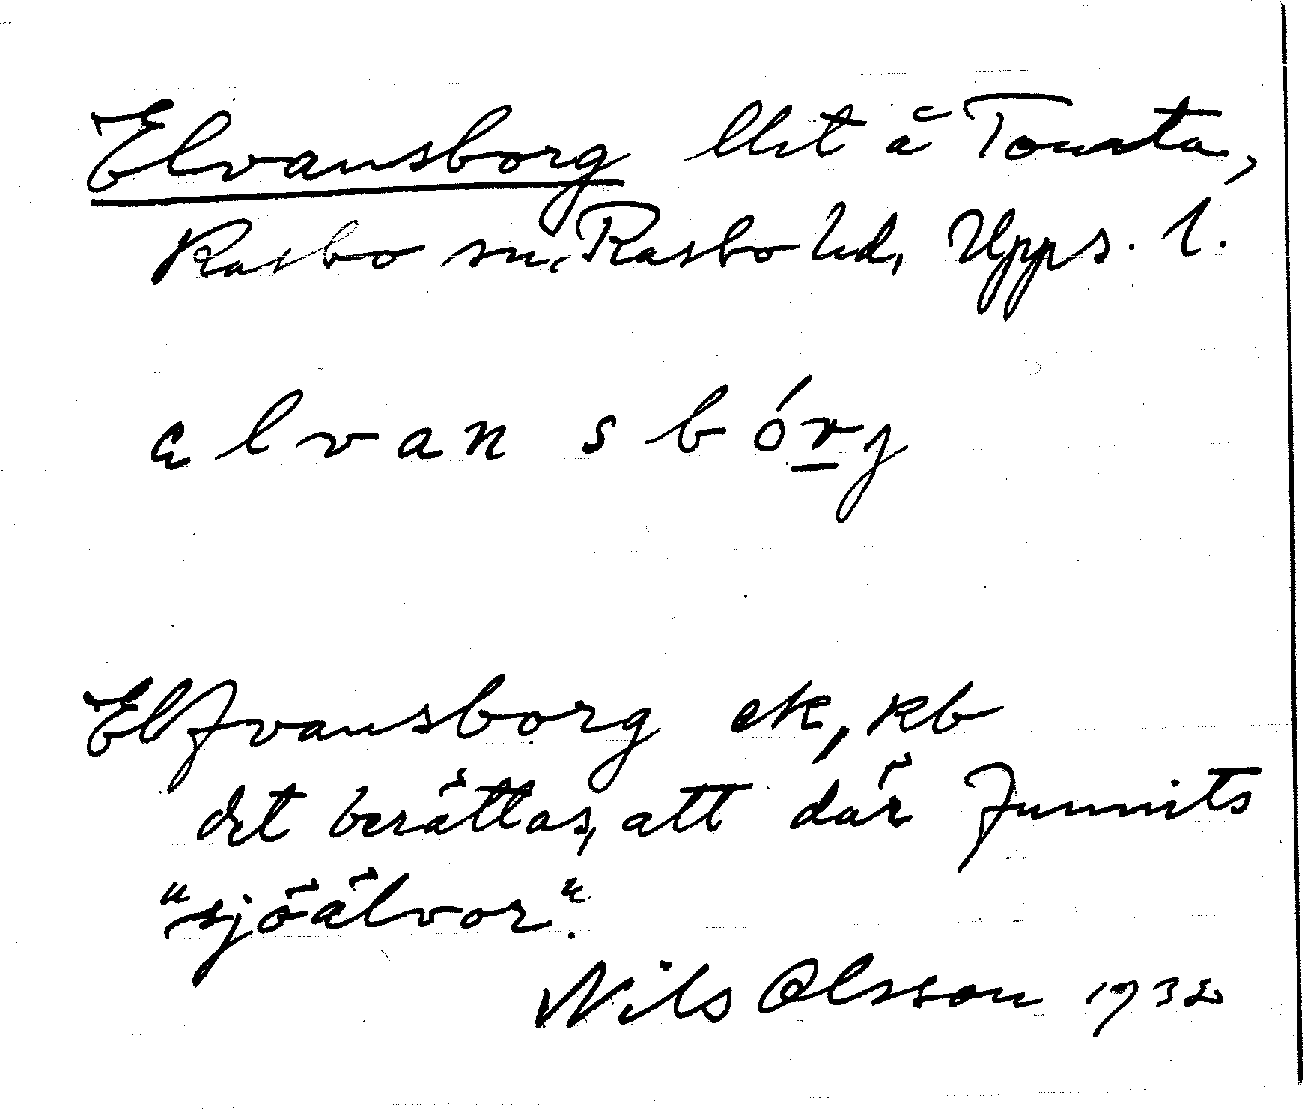 Elvansborg llet å Tousta,
Rasbo sn, Rasbo hd, Upps. l.
ɛlvan sbórj
Elfvansborg ek, kb
det berättas, att där funnits
"sjöälvor".
Nils Olsson 1932